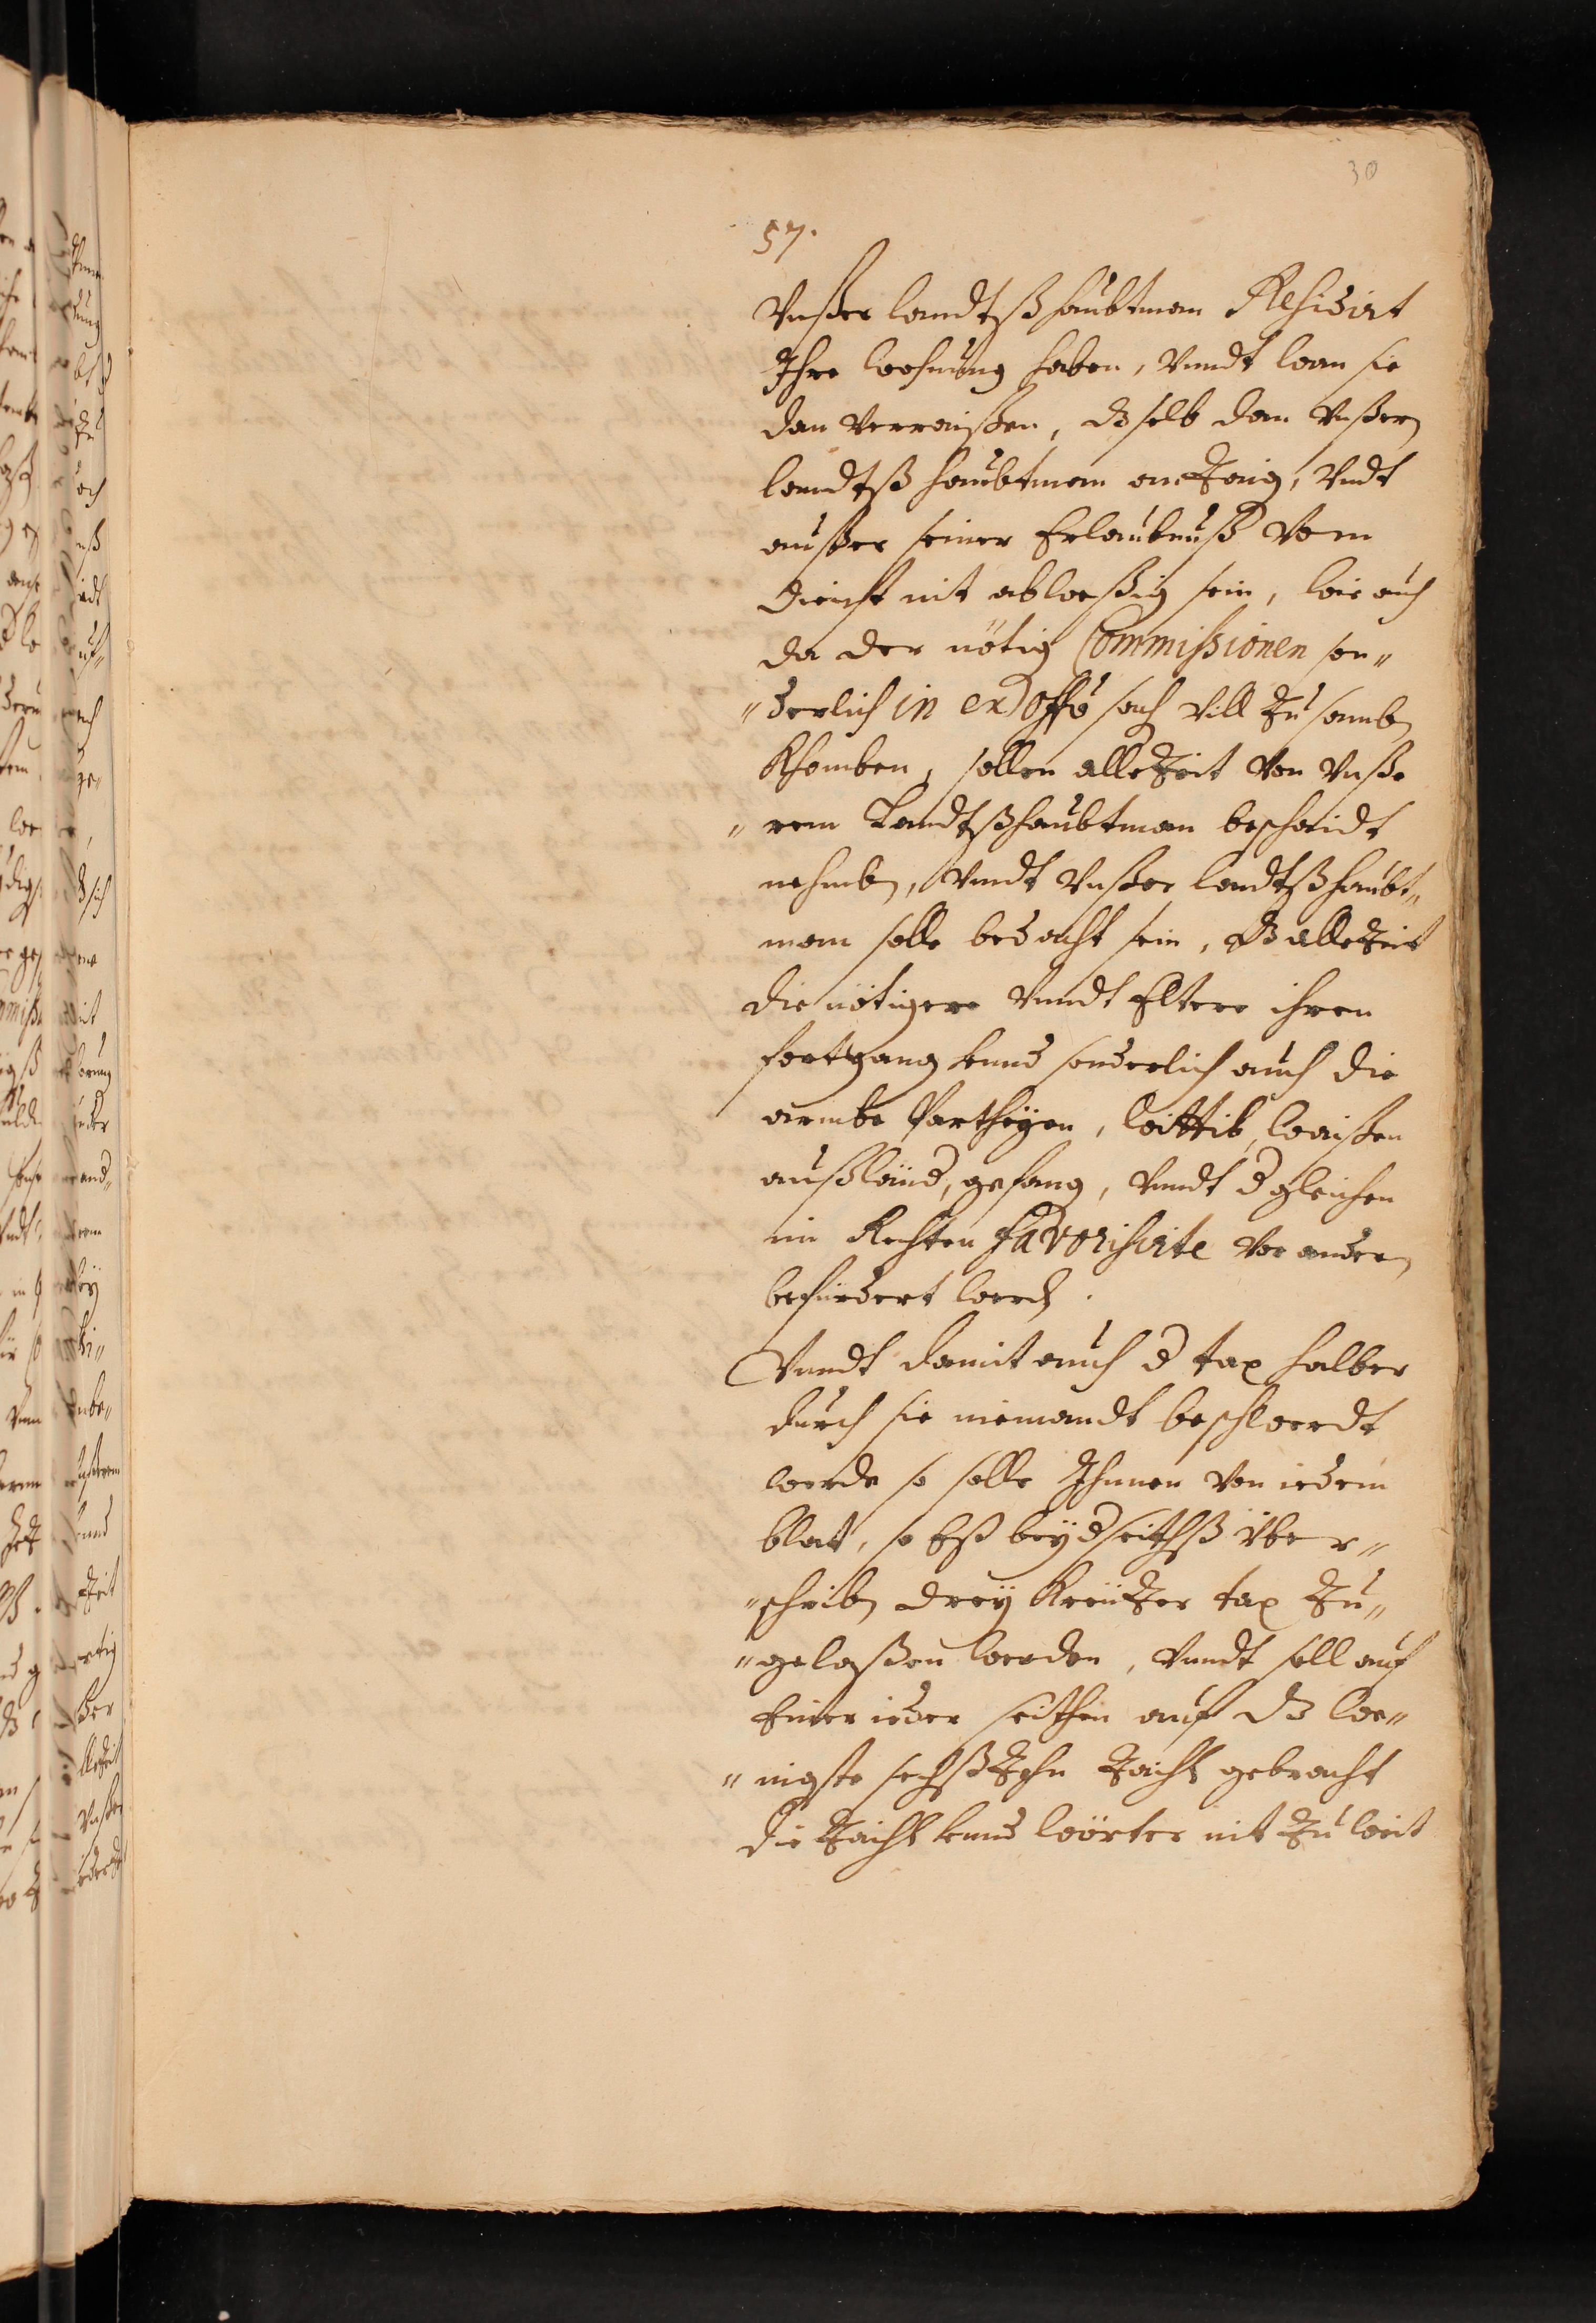 30
57.
Vnßer landtßhaubtman Residirt
Ihre wohnung haben, Vnndt wan sie
dan verraißen, dßselb dan Vnßern
landtßhaubtman anZaig, Vndt
außer seiner Erlaubnuß Vom
dienst nit abweßig sein, wie auch
da der nötig Commißionen son„
„derlich in ex offo sach vill Zusamb
Khomben, sollen alleZeit von Vnße
„rem Landtßhaubtman beschaidt
nehmb, Vnndt Vnßer landtßhaubt„
man solle bedacht sein, dß alleZeit
die nötigere Vnndt Eltere ihren
fortgang vnnd sonderlich auch die
armbe Partheyen, wittib, waißen
außländ, gefang, Vnndt dgleichen
im Rechten favorisirte vor andern
befürdert werd.
Vnndt damit auch d tax halber
durch sie niemandt beschwerdt
werde so solle Ihnnen von iedem
blat, so Eß beydseithß über„
„schriben dreÿ KreuZer tax Zu„
„gelaßen werden, Vnndt soll auf
Einer ieder seithen auf dß we„
„nigste sechßZehn Zaihl gebracht
die Zaihl vnnd wörter nit Zu weit